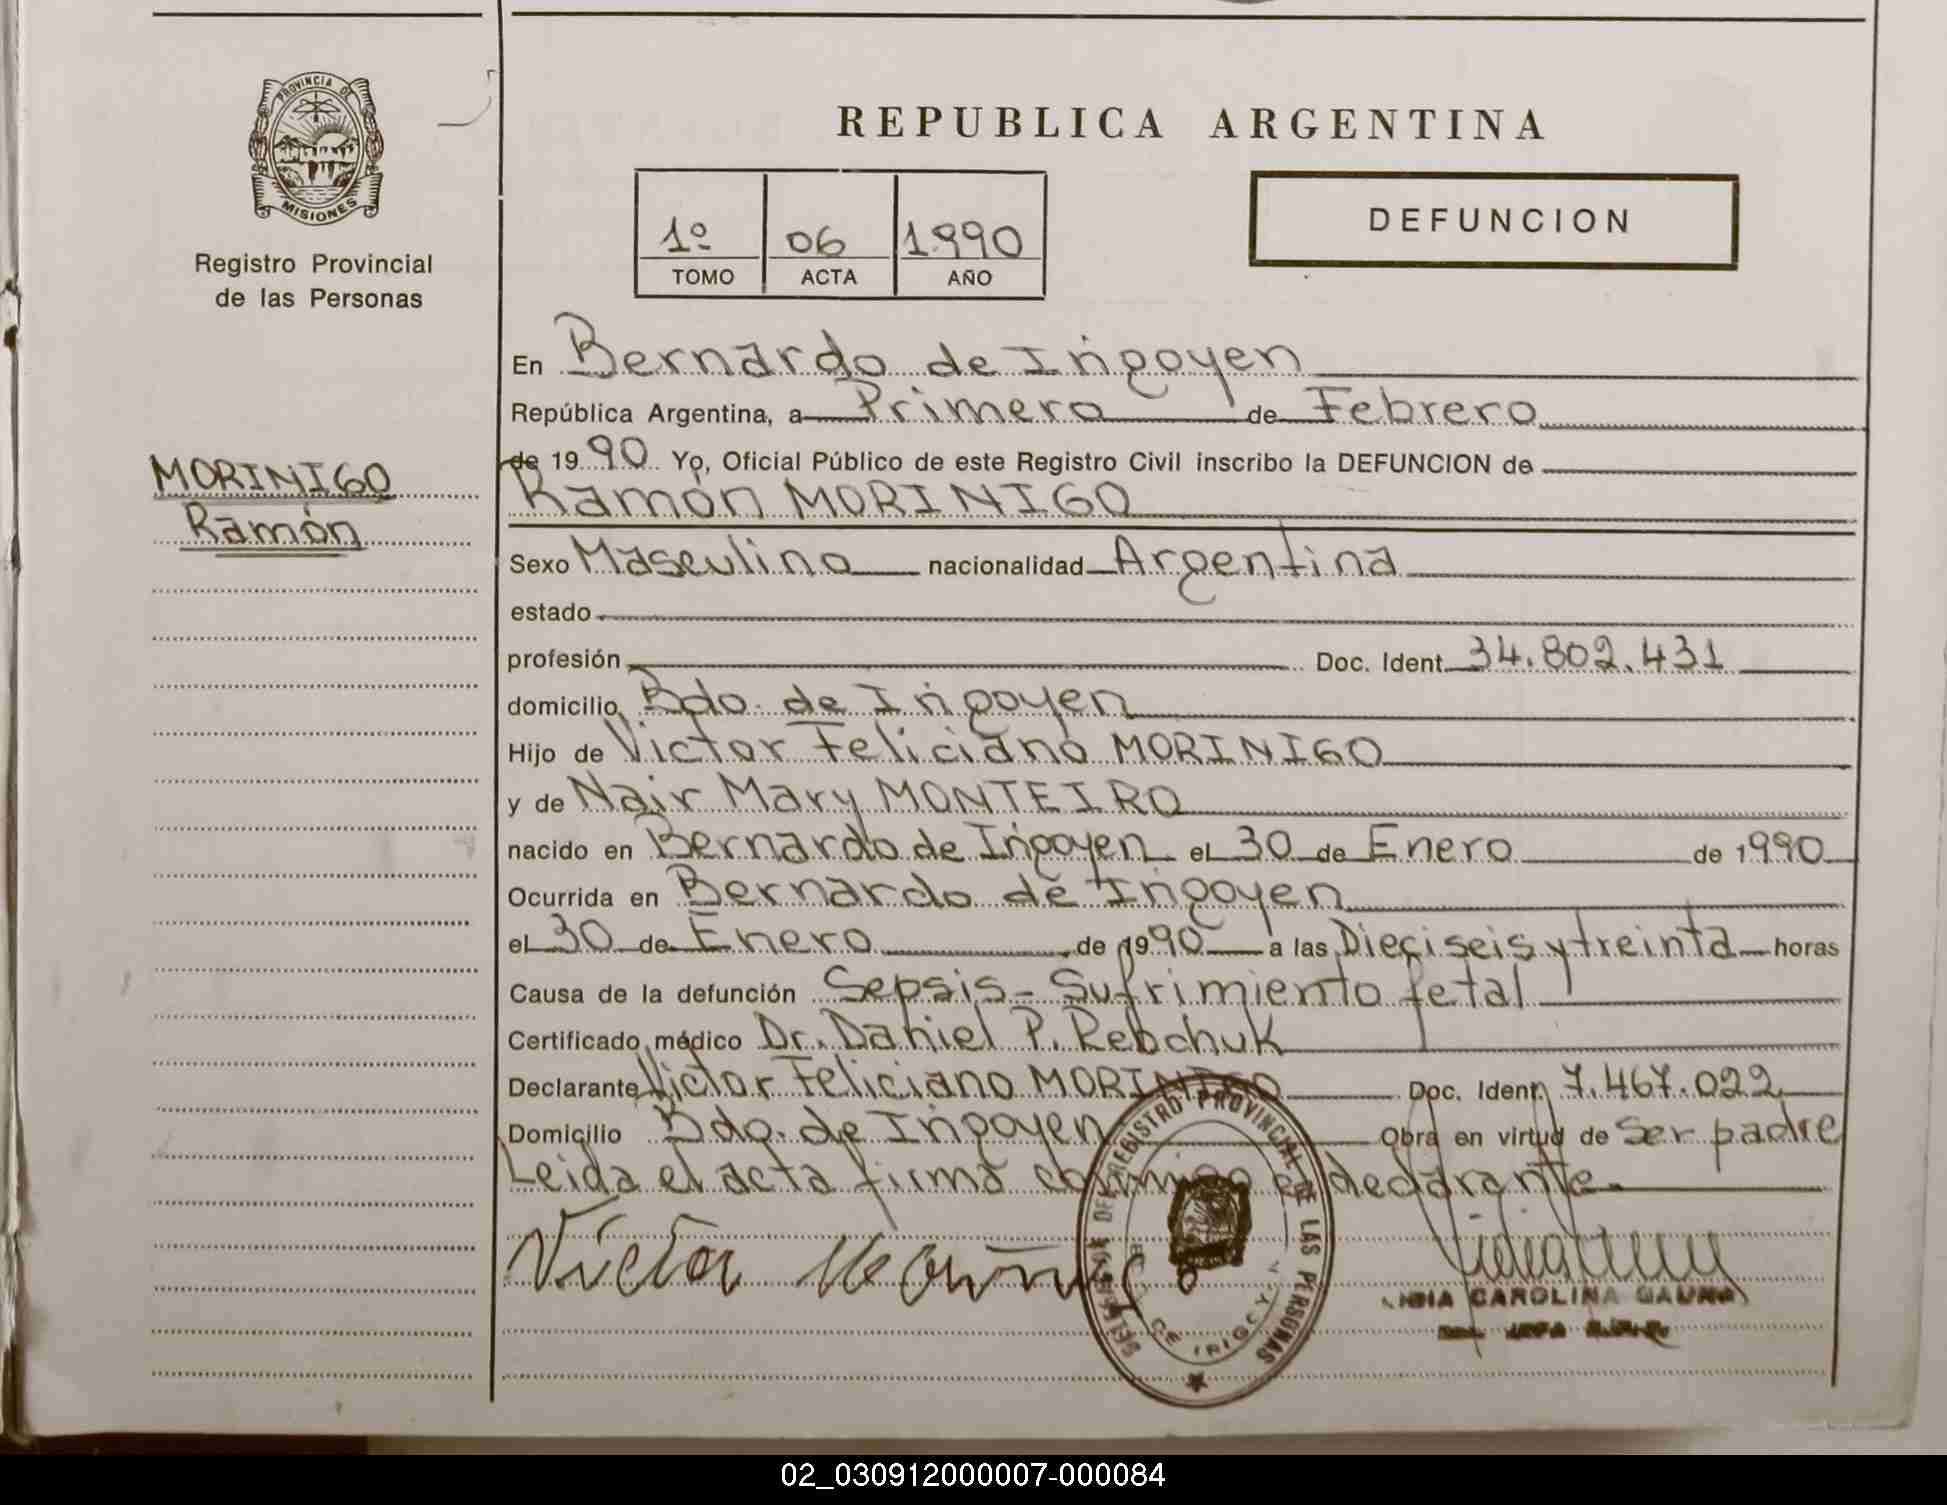 PROVINCIA DE
MISIONES
Registro Provincial
de las Personas
MORINIGO
Ramón
REPUBLICA ARGENTINA
1º 06 1990
TOMO ACTA AÑO
DEFUNCION
En Bernardo de Irigoyen
República Argentina, a Primero de Febrero
de 1990 Yo, Oficial Público de este Registro Civil inscribo la DEFUNCION de
Ramón MORINIGO
Sexo Masculino nacionalidad Argentina
estado
profesión Doc. Ident. 34.802.431
domicilio Bdo. de Irigoyen
Hijo de Victor Feliciano MORINIGO
y de Nair Mary MONTEIRO
nacido en Bernardo de Irigoyen el 30 de Enero de 1990
Ocurrida en Bernardo de Irigoyen
el 30 de Enero de 1990 a las Dieciseis y treinta horas
Causa de la defunción Sepsis - Sufrimiento fetal
Certificado médico Dr. Daniel P. Rebchuk
Declarante Victor Feliciano MORINIGO Doc. Ident. 7.467.022
Domicilio Bdo. de Irigoyen Obra en virtud de ser padre
Leida el acta firma conmigo el declarante.
Victor Morinigo
REGISTRO PROVINCIAL DE LAS PERSONAS
DE IRIGOYEN
CAROLINA GAUNA
02_030912000007-000084